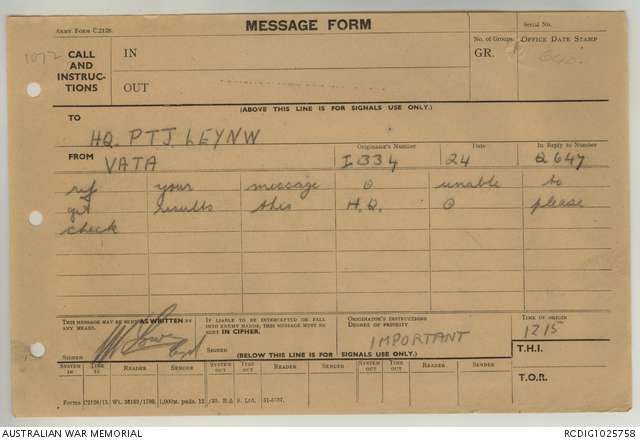 ARMY FORM C.2128.
MESSAGE FORM
SERIAL NO.
1072
CALL AND INSTRUC-TIONS
IN
OUT
No. of Groups
GR.
OFFICE DATE STAMP
(ABOVE THIS LINE IS FOR SIGNALS USE ONLY.)
TO
HQ. PTJ LEYNW
FROM
VATA
Originator's Number
I 334
Date
24
In Reply to Number
Q 647
ref your message O unable to
get results this H.Q. O please
check
THIS MESSAGE MAY BE SENT AS WRITTEN BY ANY MEANS.
SIGNED
IF LIABLE TO BE INTERCEPTED OR FALL INTO ENEMY HANDS, THIS MESSAGE MUST BE SENT IN CIPHER.
SIGNED
ORIGINATOR'S INSTRUCTIONS
DEGREE OF PRIORITY
IMPORTANT
TIME OF ORIGIN
1215
T.H.I.
T.O.R.
(BELOW THIS LINE IS FOR SIGNALS USE ONLY.)
SYSTEM IN
TIME IN
READER
SENDER
SYSTEM OUT
TIME OUT
READER
SENDER
SYSTEM OUT
TIME OUT
READER
SENDER
AUSTRALIAN WAR MEMORIAL
RCDIG1025758